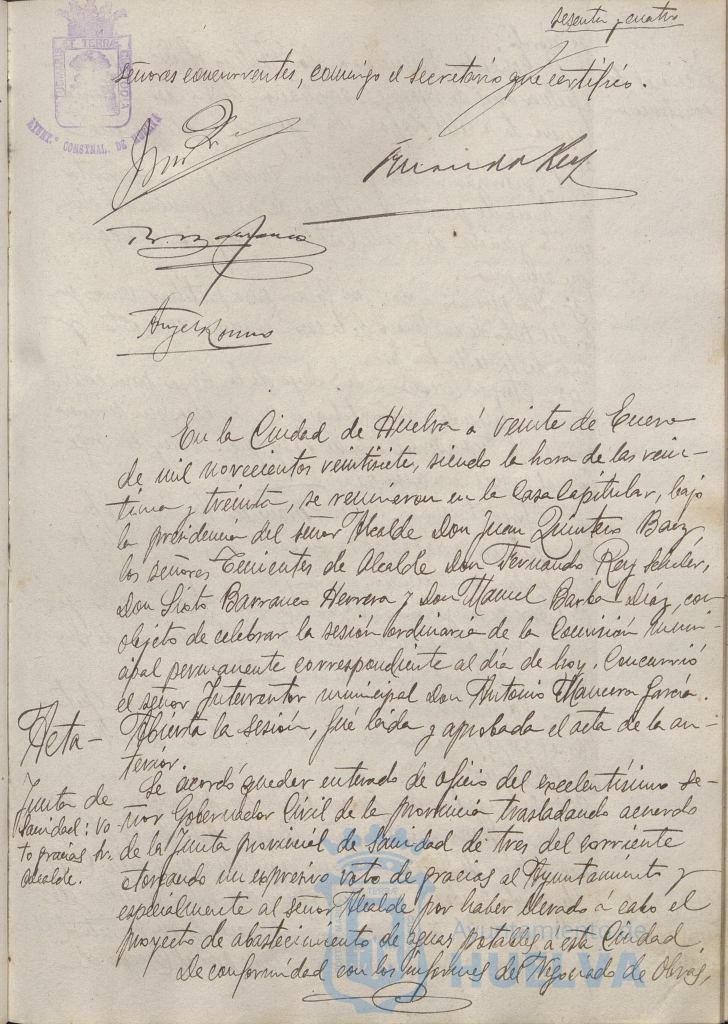 sesenta y cuatro
señores concurrentes, conmigo el Secretario que certifico.
Fernando Rey
Angel Romo
En la Ciudad de Huelva á veinte de Enero
de mil novecientos veintisiete, siendo la hora de las vein-
tiuna y treinta, se reunieron en la Casa Capitular, bajo
la presidencia del señor Alcalde Don Juan Quintero Baez,
los señores Tenientes de Alcalde Don Fernando Rey
Don Sixto Barranco Herrera y Don Manuel Barba Díaz, con
objeto de celebrar la sesión ordinaria de la Comisión muni-
cipal permanente correspondiente al día de hoy. Concurrió
el señor Interventor municipal Don Antonio Mancera García.
Acta- Abierta la sesión, fué leida y aprobada el acta de la an-
terior.
Junta de
Sanidad: vo-
to gracias Sr.
Alcalde.
Se acordó quedar enterado de oficio del excelentísimo se-
ñor Gobernador Civil de la provincia trasladando acuerdo
de la Junta provincial de Sanidad de tres del corriente
otorgando un expresivo voto de gracias al Ayuntamiento y
especialmente al señor Alcalde por haber llevado á cabo el
proyecto de abastecimiento de aguas potables á esta Ciudad.
De conformidad con los informes del Negociado de Obras,
Ayuntamiento de
HUELVA